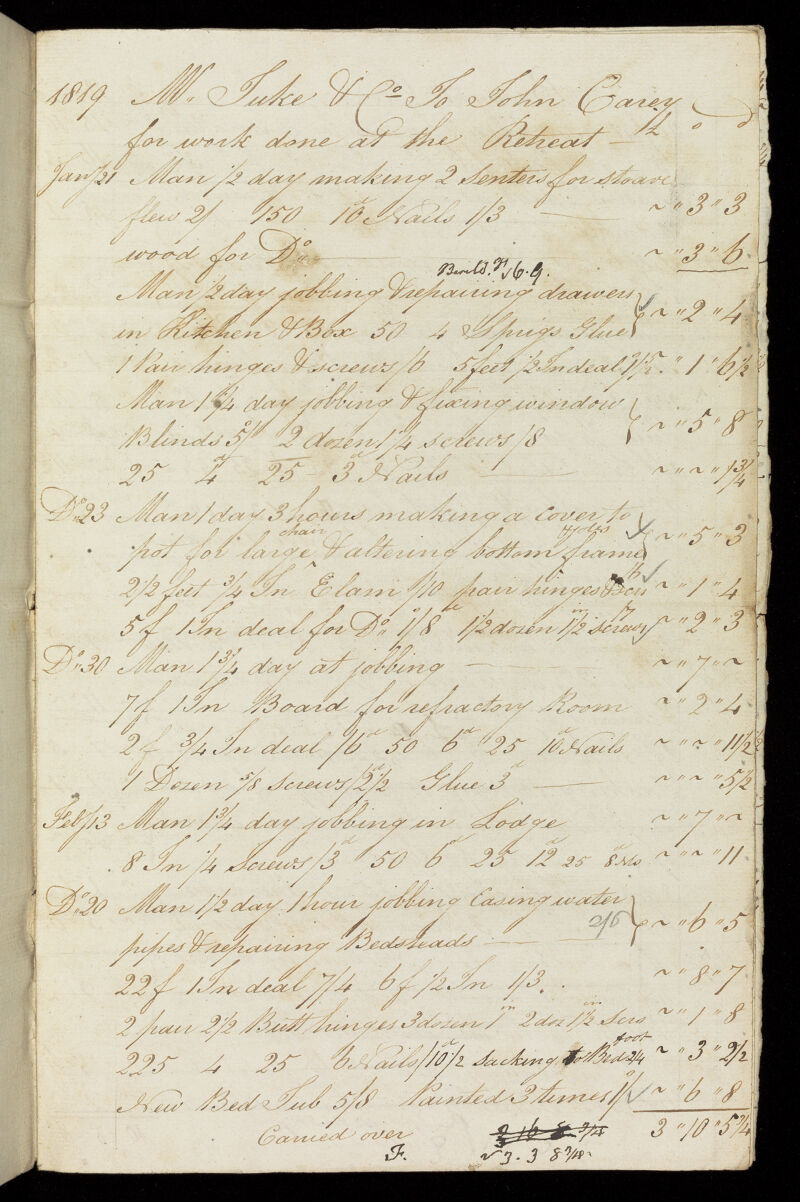 1819 Mr. Tuke & Co To John Carey
for work done at the Retreat —
Jany 21 Man 1/2 day making 2 Senters for stoave
flew 2/ 150 10d Nails 1/3 — ~ " 3 " 3
wood for Do — ~ " 3 " 6
6.9.
Man 1/2 day jobbing & repairing drawers
in Kitchen & Box 50 4 Sprigs Glue ~ " 2 " 4
1 Pair hinges & screws /6 5 feet 1/2 In deal " 1 " 6 1/2
Man 1 1/4 day jobbing & fixing window
Blinds 5/ 2 dozen 1 1/4 screws /8 ~ " 5 " 8
25 4d 25 3d Nails — ~ " ~ " 1 3/4
Do 23 Man 1 day 3 hours making a cover to
chair
pot for large & altering bottom frame ~ " 5 " 3
2 1/2 feet 3/4 In Elam /10 pair hinges & ~ " 1 " 4
5 f 1 In deal for Do 1/8 1 1/2 dozen 1 1/2 in screws /7 ~ " 2 " 3
Do 30 Man 1 3/4 day at jobbing — ~ " 7 " ~
7 f 1 In Board for refractory Room ~ " 2 " 4
2 f 3/4 In deal /6 50 6d 25 10d Nails ~ " ~ " 11 1/2
1 Dozen 5/8 screws /2 1/2 Glue 3d — ~ " ~ " 5 1/2
Feby 13 Man 1 3/4 day jobbing in Lodge ~ " 7 " ~
8 In 1/4 screws /3 50 6d 25 12d 25 8 Ns ~ " ~ " 11
Do 20 Man 1 1/2 day 1 hour jobbing Casing water
pipes & repairing Bedsteads — 2/6 ~ " 6 " 5
22 f 1 In deal 7/4 6 f 1/2 In 1/3. ~ " 8 " 7
2 pair 2 1/2 Butt hinges 3 dozen 1 in 2 doz 1 1/2 in Scrs ~ " 1 " 8
foot
225 4 25 6 Nails /10 1/2 sacking to Bed 2/4 ~ " 3 " 2 1/2
New Bed Tub 5/8 Painted 3 times 1/ ~ " 6 " 8
Carried over 3 " 10 " 5 3/4
F. 3. 3 8 3/4